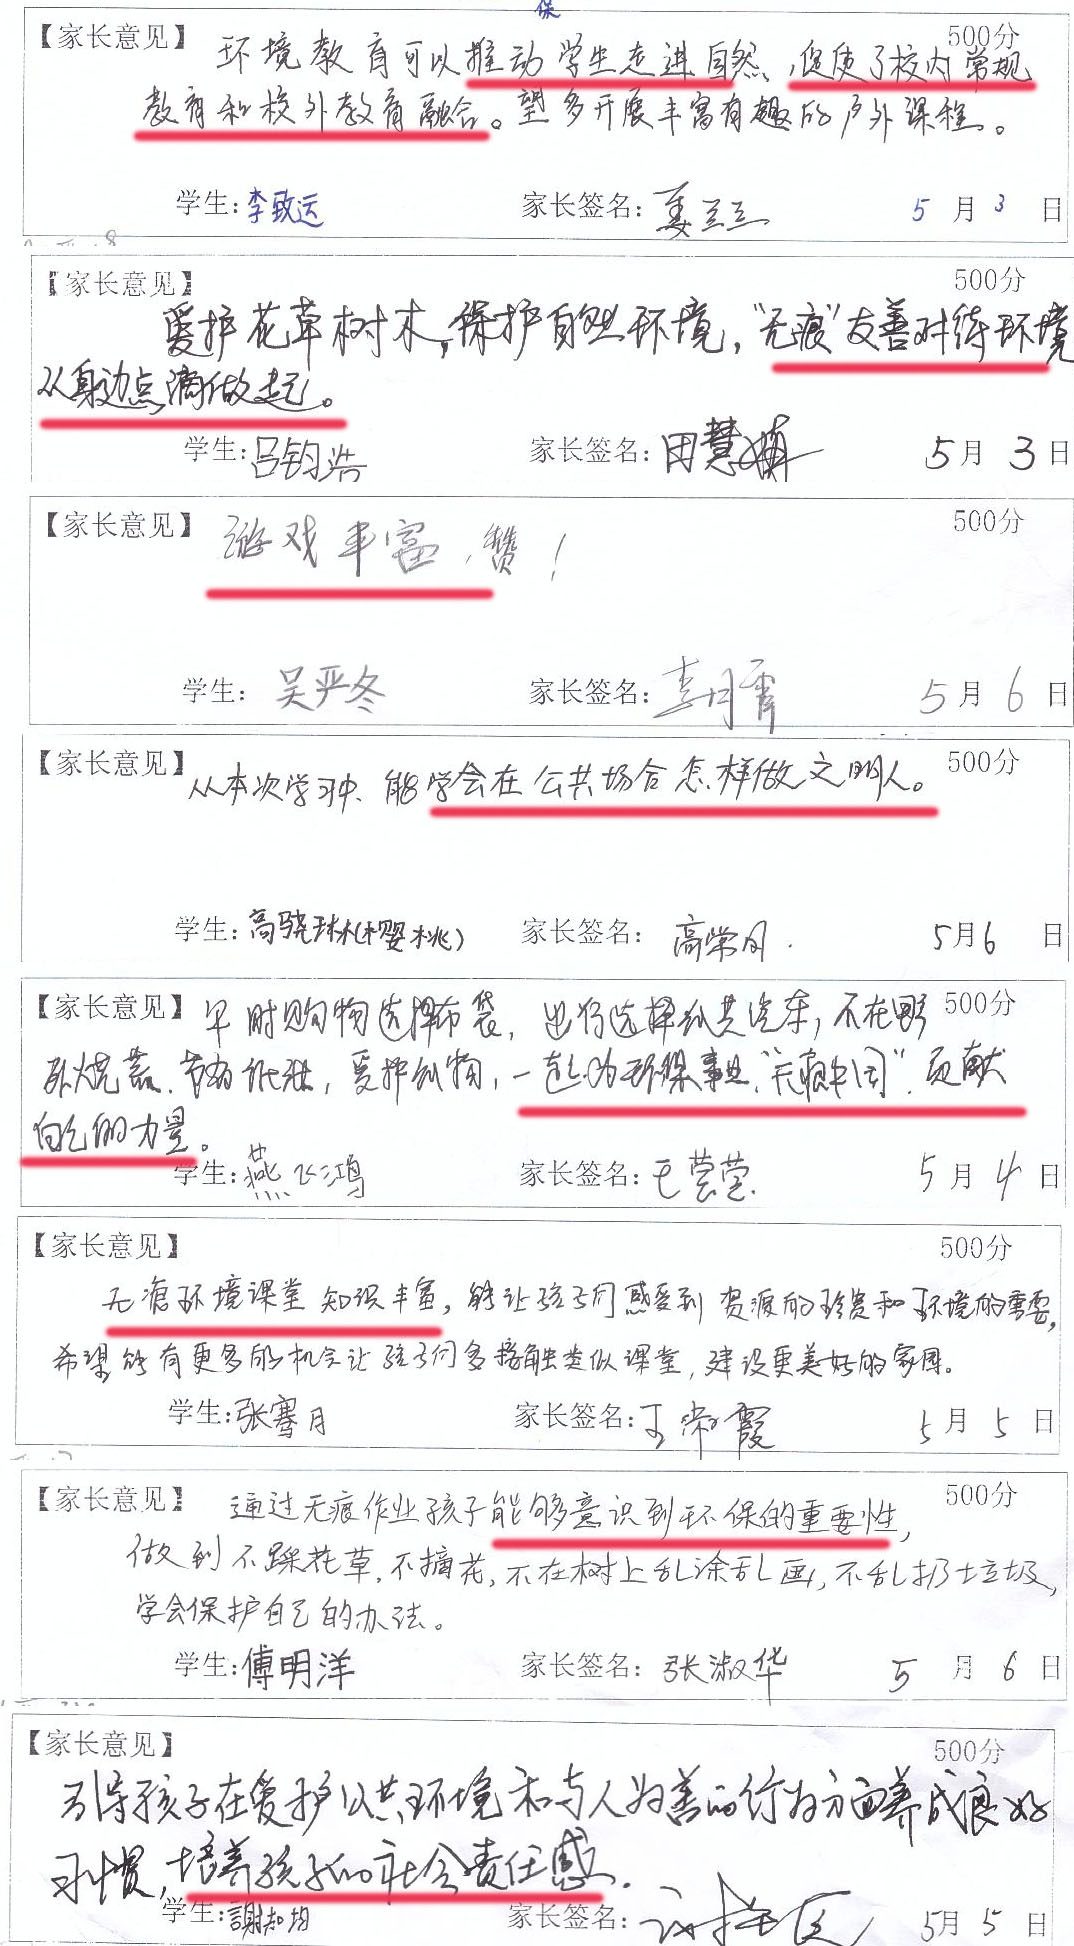 保
【家长意见】 500分
环境教育可以推动学生走进自然,促使了校内常规
教育和校外教育融合。望多开展丰富有趣的户外课程。
学生:李致远 家长签名:姜兰兰 5月3日
【家长意见】 500分
爱护花草树木,保护自然环境,“无痕”友善对待环境
从身边点滴做起。
学生:吕钧浩 家长签名:田慧 5月3日
【家长意见】 500分
游戏丰富,赞!
学生:吴严冬 家长签名:李月霄 5月6日
【家长意见】 500分
从本次学习中、能学会在公共场合怎样做文明人。
学生:高骁琳(樱桃) 家长签名:高荣月. 5月6日
【家长意见】 500分
平时购物选择布袋,出行选择公共汽车,不在野
外烧荒、节省纸张,爱护公物,一起为环保事业“无痕中国”贡献
自己的力量。
学生:燕飞鸿 家长签名:王芸莹 5月4日
【家长意见】 500分
无痕环境课堂知识丰富,能让孩子们感受到资源的珍贵和环境的重要,
希望能有更多的机会让孩子们多接触类似课堂,建设更美好的家园。
学生:张骞月 家长签名:王霞 5月5日
【家长意见】 500分
通过无痕作业孩子能够意识到环保的重要性,
做到不踩花草,不摘花,不在树上乱涂乱画,不乱扔垃圾,
学会保护自己的办法。
学生:傅明洋 家长签名:张淑华 5月6日
【家长意见】 500分
引导孩子在爱护公共环境和与人为善的行为方面养成良好
习惯,培养孩子的社会责任感.
学生:謝知均 家长签名: 5月5日